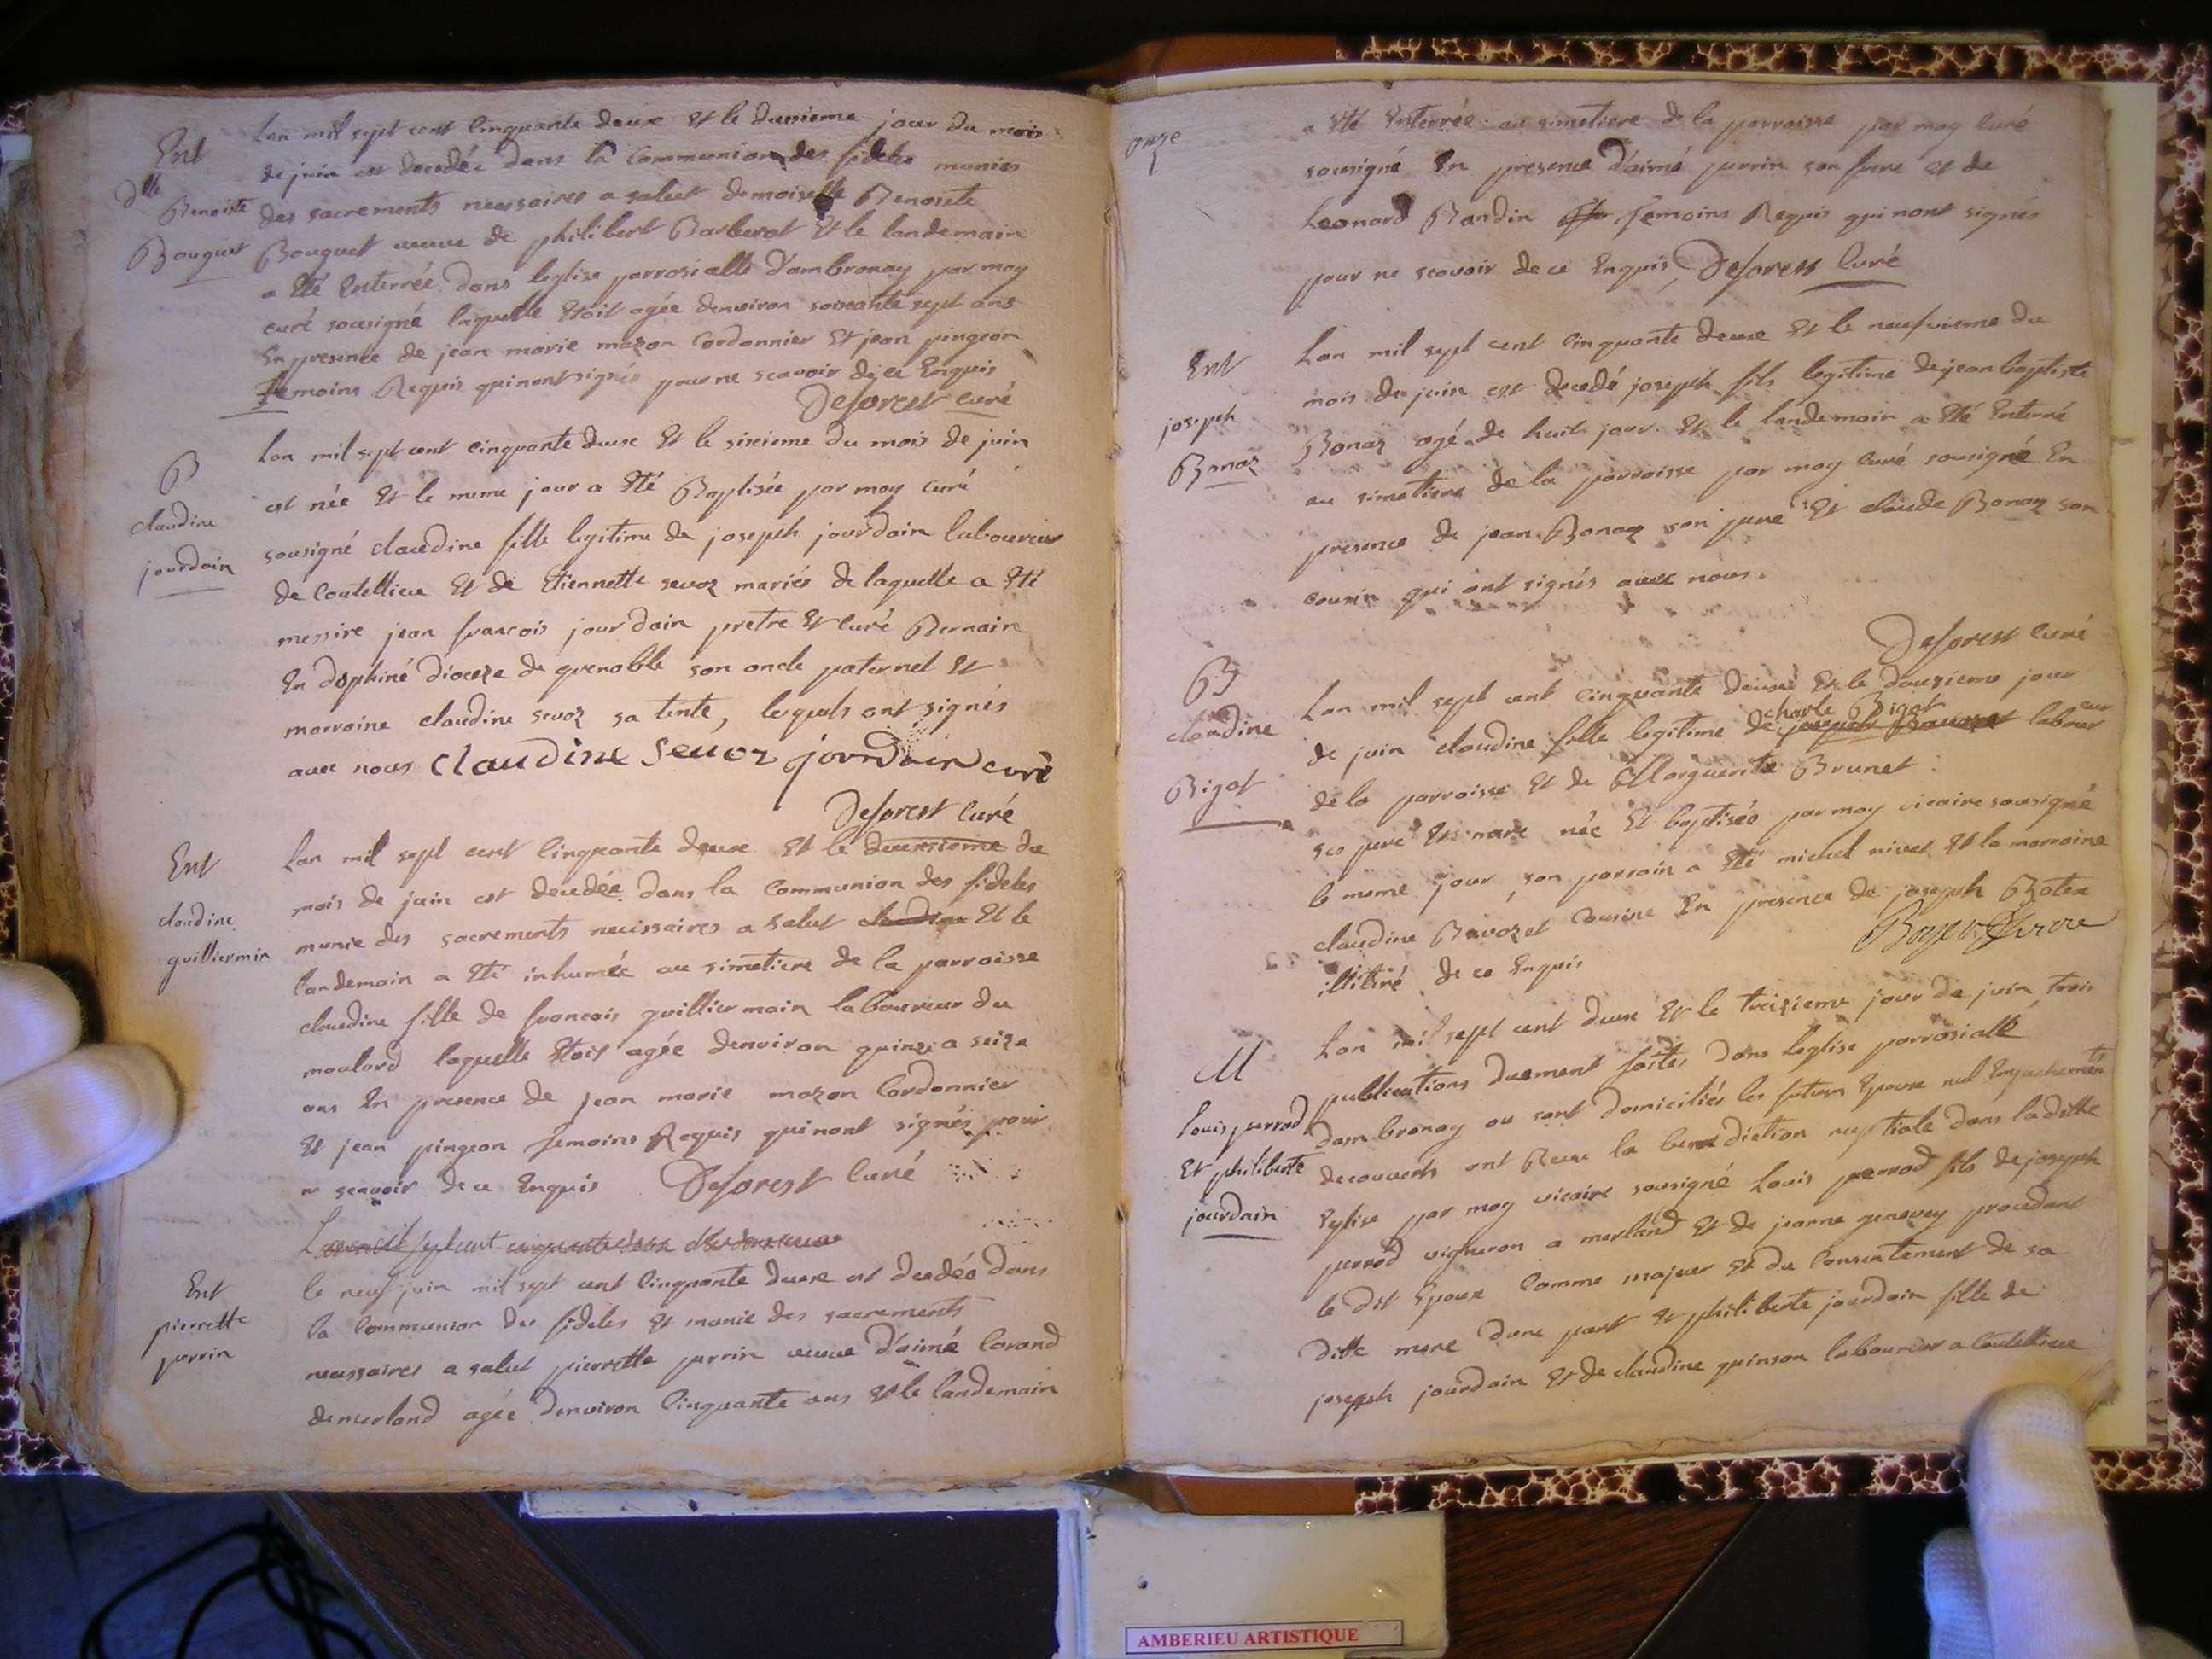 Ent
Dlle
Benoiste
Bouquet
Lan mil sept cent Cinquante deux Et le deusieme jour du mois
de juin est decedée dans la Communion des fideles munies
des sacrements necessaires a salut demoiselle Benoiste
Bouquet veuve de philibert Barberat Et le landemain
a Eté Enterrée dans leglise parrosialle d'ambronay par moy
curé sousigné laquelle Etoit agée denviron soixante sept ans
En presence de jean marie mazon Cordonnier Et jean pingeon
Temoins Requis qui nont signés pour ne scavoir de ce Enquis
Deforest curé
B
claudine
jourdain
Lan mil sept cent cinquante deux Et le sixieme du mois de juin
est née Et le meme jour a Eté Baptisée par moy curé
sousigné claudine fille legitime de joseph jourdain laboureur
de Coutellieu Et de Etiennette sevoz mariés de laquelle a Eté
messire jean francois jourdain pretre Et Curé Bernain
En dophiné diocese de grenoble son oncle paternel Et
marraine claudine sevoz sa tente, lequels ont signés
avec nous Claudine Sevoz jourdain curé
Deforest Curé
Ent
claudine
guilliermin
Lan mil sept cent Cinquante deux Et le deuxsieme du
mois de juin est decedée dans la Communion des fideles
munie des sacrements necissaires a salut claudine Et le
landemain a Eté inhumée au simetiere de la parroisse
claudine fille de francois guilliermain laboureur du
moulard laquelle Etoit agée denviron quinze a seize
ans En presence de jean marie mazon Cordonnier
Et jean pingeon Temoins Requis qui nont signés pour
ne scavoir de ce Enquis Deforest Curé
Lan mil sept cent cinquante deux
Ent
pierrette
perrin
le neuf juin mil sept cent Cinquante deux est decedée dans
la Communion des fideles Et munie des sacrements
necessaires a salut pierrette perrin veuve d'aimé Corand
de merland agée denviron Cinquante ans Et le landemain
onze
a Eté Enterrée au simetiere de la parroisse par moy Curé
sousigné En presence d'aimé perrin son frere et de
Leonard Bandin Temoins Requis qui nont signés
pour ne scavoir de ce Enquis, Deforest Curé
Ent
joseph
Bonaz
Lan mil sept cent Cinquante deux Et le neufvieme du
mois de juin est decedé joseph fils legitime de jean baptiste
Bonaz agé de huit jour Et le landemain a Eté Enterré
au simetiere de la parroisse par moy Curé sousigné En
presence de jean Bonaz son pere Et claude Bonaz son
cousin qui ont signés avec nous.
Deforest Curé
B
claudine
Bigot
Lan mil sept cent Cinquante deuxe Et le douzieme jour
de juin claudine fille legitime de charle Bigot laboureur
de la parroisse Et de Marguerite Brunet
ses pere Et mere née Et baptisée par moy vicaire sousigné
le meme jour, son parrain a Eté michel nivet Et la marraine
claudine Bavozet Cousine En presence de joseph Botex
illitiré de ce Enquis
M
Louis perrod
Et philiberte
jourdain
Lan mil sept cent deux Et le treizieme jour de juin trois
publications duement faites dans leglise parrosialle
dambronay ou sont domiciliés les futurs Epoux nul Enpechement
decouverts ont Receu la benediction nuptiale dans laditte
Eglise par moy vicaire sousigné Louis perrod fils de joseph
perrod vigneron a merland Et de jeanne genevey procedant
le dit Epoux Comme majeur Et du Consentement de sa
ditte mere dune part Et philiberte jourdain fille de
joseph jourdain Et de claudine guinson laboureur a Coutellieux
AMBERIEU ARTISTIQUE